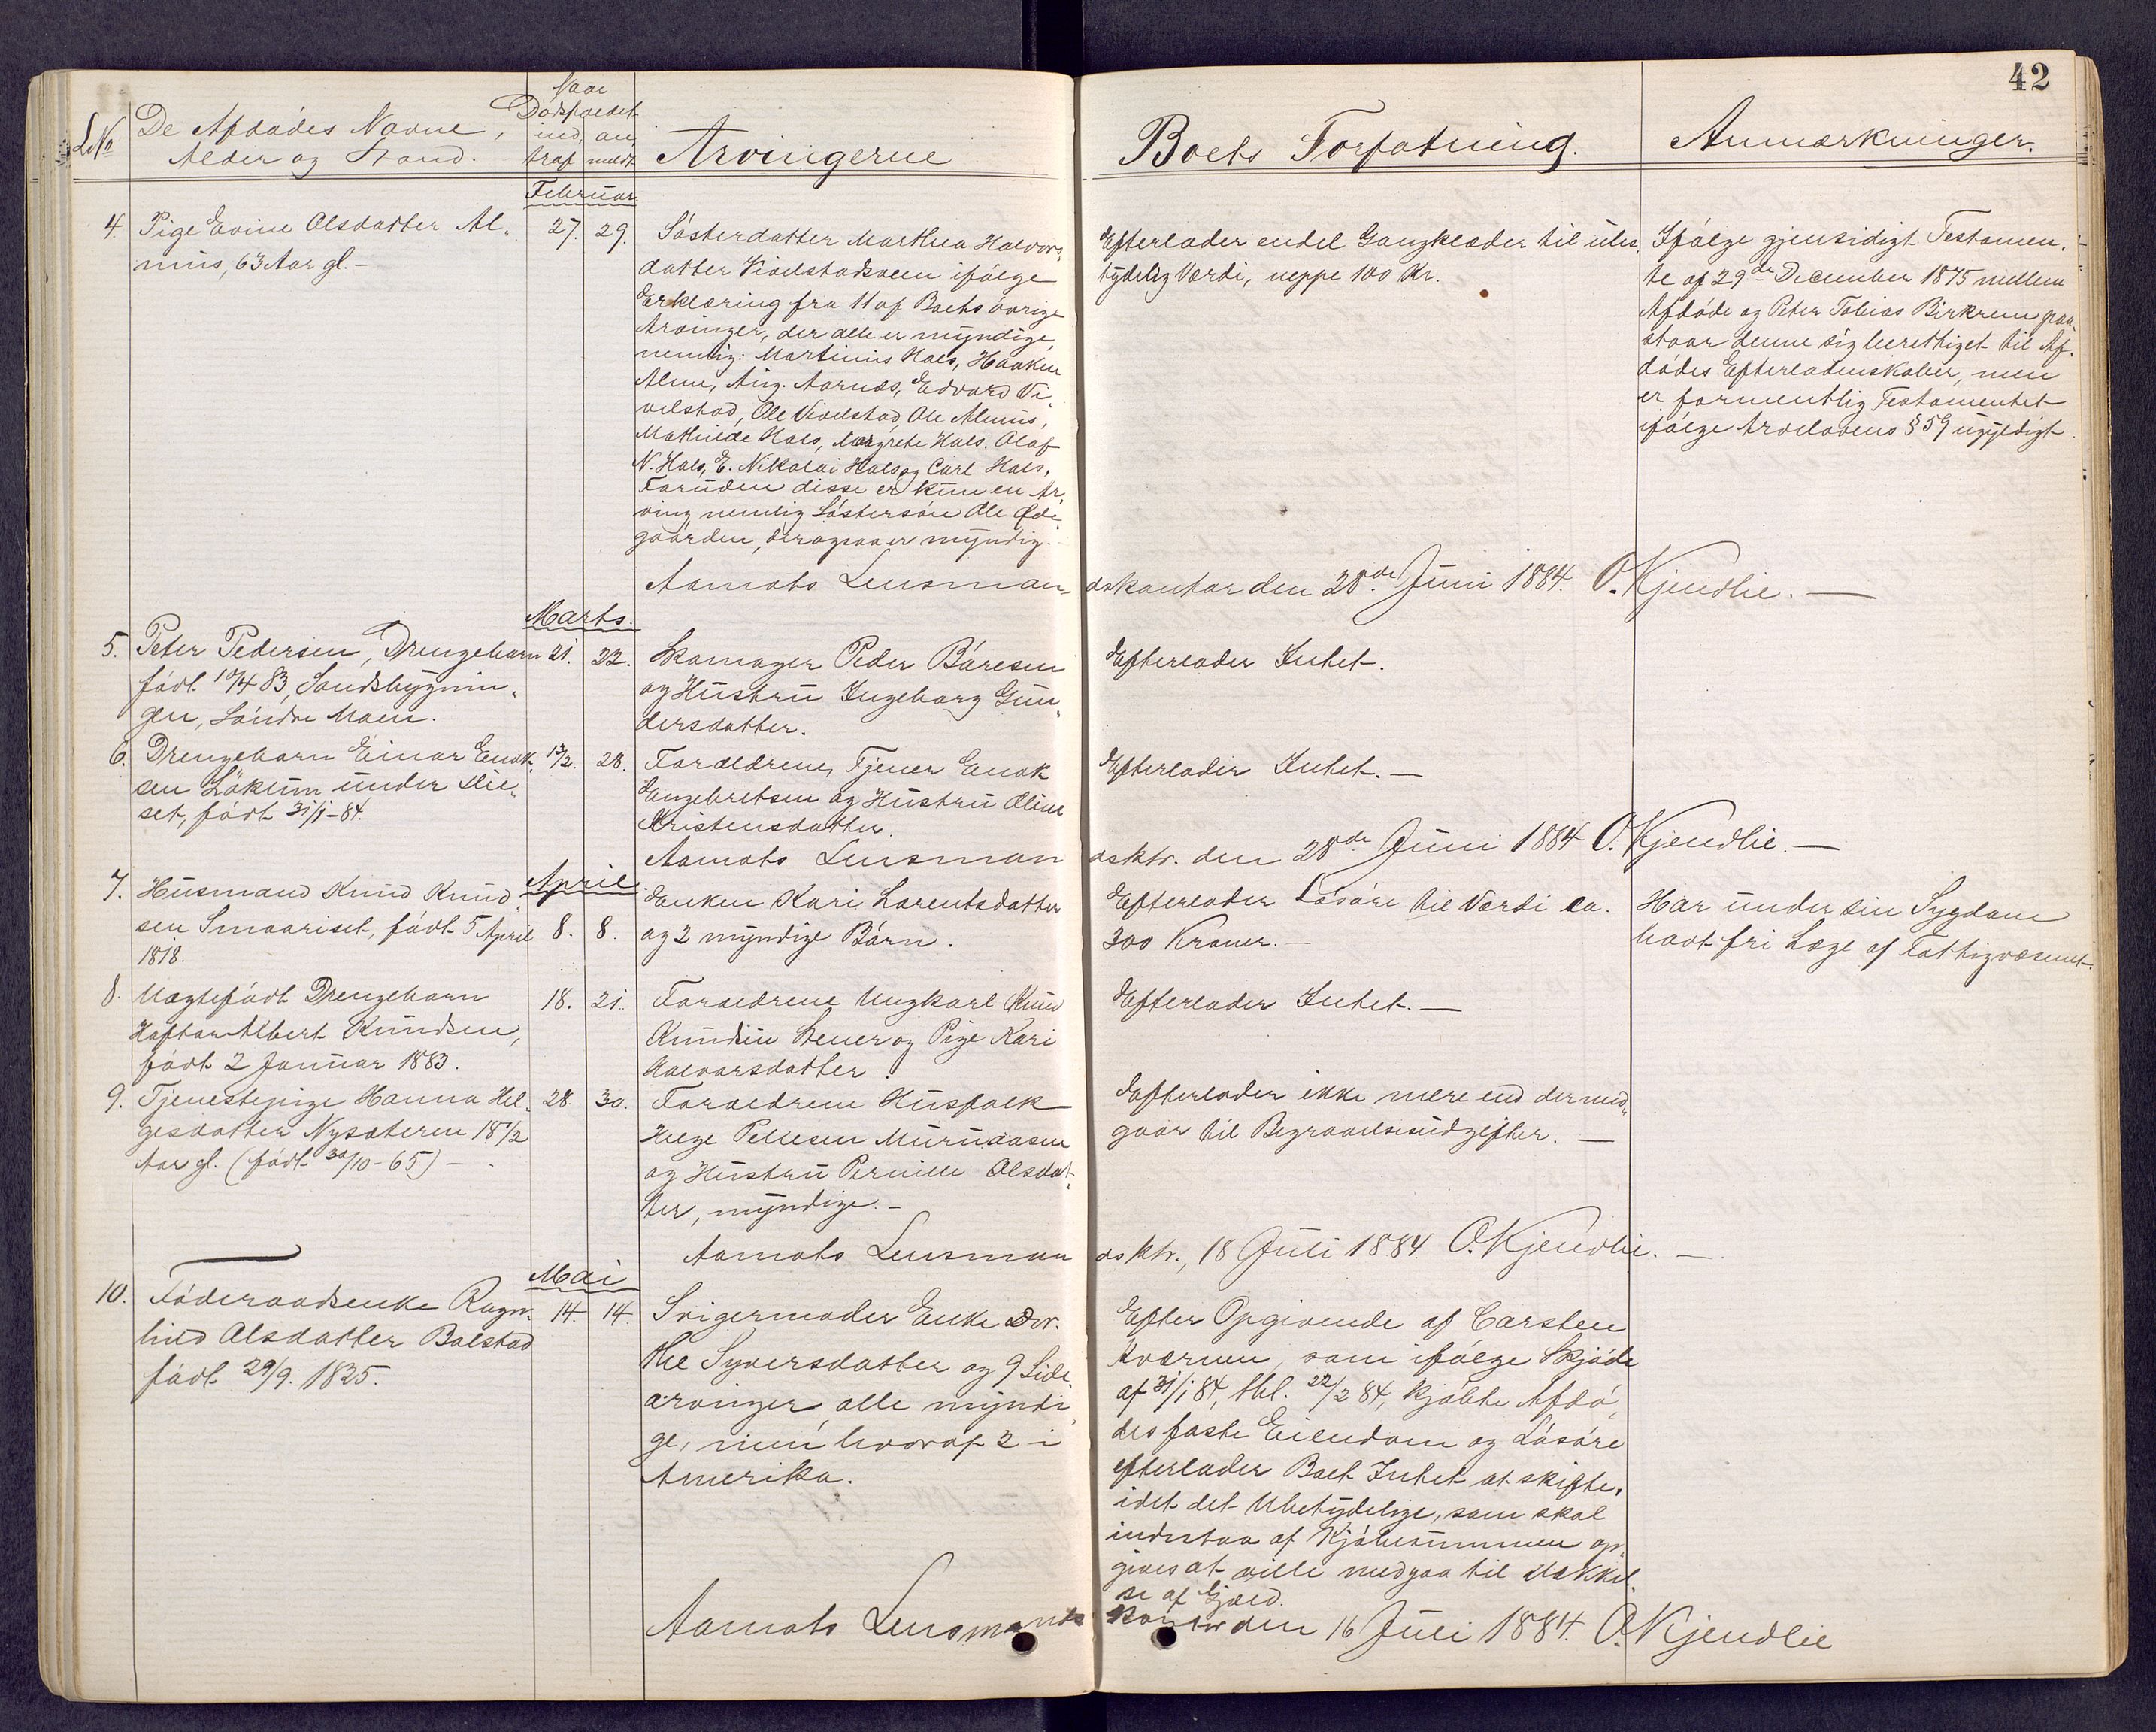 42
LNo
De Afdødes Navne,
Alder og Stand.
Naar
Dødsfaldet
ind, an,
traf meldt
Arvingerne
Boets Forfatning.
Anmærkninger.
Februar
4. Pige Evine Olsdatter Al,
mus, 63 Aar gl.-
27. 29.
Søsterdatter Marthea Halvors,
datter Vivelstadsveen ifølge
Erklæring fra 11 af Boets øvrige
Arvinger, der alle er myndige,
nemlig: Martinus Hals, Haaken
Alme, Aug. Aarnæs, Edvard Vi,
velstad, Ole Vivelstad, Ole Almus,
Mathilde Hals, Margrete Hals. Olaf
N. Hals, E. Nikolai Hals og Carl Hals.
Foruden disse er kun en Ar,
ving nemlig Søstersøn Ole Øde,
gaarden, der ogsaa er myndig.
Efterlader endel Gangklæder til ube,
tydelig Værdi, neppe 100 Kr.
Ifølge gjensidigt Testamen,
te af 29de December 1875 mellem
Afdøde og Peter Tobias Birkrem paa,
staar denne sig berettiget til Af,
dødes Efterladenskaber, men
er formentlig Testamentet
ifølge Arvelovens § 59 ugyldigt.
Aamots Lensman, dskontor den 28de Juni 1884. O. Kjendlie.
Marts.
5. Peter Pedersen, Drengebarn
født 10/4 83, Sandsbygnin,
gen, Søndre Moen.
21. 22.
Skomager Peder Børesen
og Hustru Ingeborg Gun,
dersdatter.
Efterlader Intet.
6. Drengebarn Einar Enok,
sen Løkum under Slie,
set, født 31/1-84.
13/2. 28.
Forældrene, Tjener Enok
Engebretsen og Hustru Oline
Kristensdatter.
Efterlader Intet.
Aamots Lensman dsktr. den 28de Juni 1884 O. Kjendlie.
April.
7. Husmand Knud Knud,
sen Smaariset, født 5 April
1818.
8. 8.
Enken Kari Larentsdatter
og 2 myndige Børn.
Efterlader Løsøre til Værdi ca.
300 Kroner.
Har under sin Sygdom
havt fri Læge af Fattigvæsenet.
8. Uægtefødt Drengebarn
Haftor Albert Knudsen,
født 2 Januar 1883.
18. 21.
Forældrene Ungkarl Knud
Knudsen Stener og Pige Kari
Halvorsdatter.
Efterlader Intet.
9. Tjenestepige Hanna Hel,
gesdatter Nysæteren 18 1/2
Aar gl. (født 30/10-65)
28. 30.
Forældrene Husfolk
Helge Pellesen Muruaasen
og Hustru Pernille Olsdat,
ter, myndige.
Efterlader ikke mere end der med,
gaar til Begravelsesudgifter.
Aamots Lensman dsktr., 18 Juli 1884. O. Kjendlie.
Mai
10. Føderaadsenke Ragn,
hild Olsdatter Bolstad
født 29/9. 1825.
14. 14.
Svigermoder Enke Dor,
the Syversdatter og 9 Side,
arvinger, alle myndi,
ge, hvoraf 2 i
Amerika.
Efter Opgivende af Carsten
Kværnen, som ifølge Skjøde
af 31/1 84, thl. 22/2 84, kjøbte Afdø,
des faste Eiendom og Løsøre
efterlader Boet Intet at skifte,
idet det Ubetydelige, som skal
indestaa af Kjøbesummen op,
gives at ville medgaa til Dækkel,
se af Gjæld.
Aamots Lensmands kontor den 16 Juli 1884. O. Kjendlie